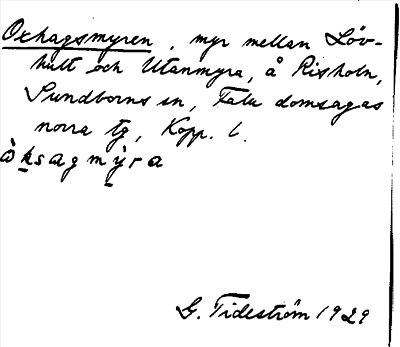 Oxhagsmyren, myr mellan Löv-
hult och Utanmyra, å Risholn,
Sundborns sn, Falu domsagas
norra tg, Kopp. l.
òksagmỳra
G. Tideström 1929